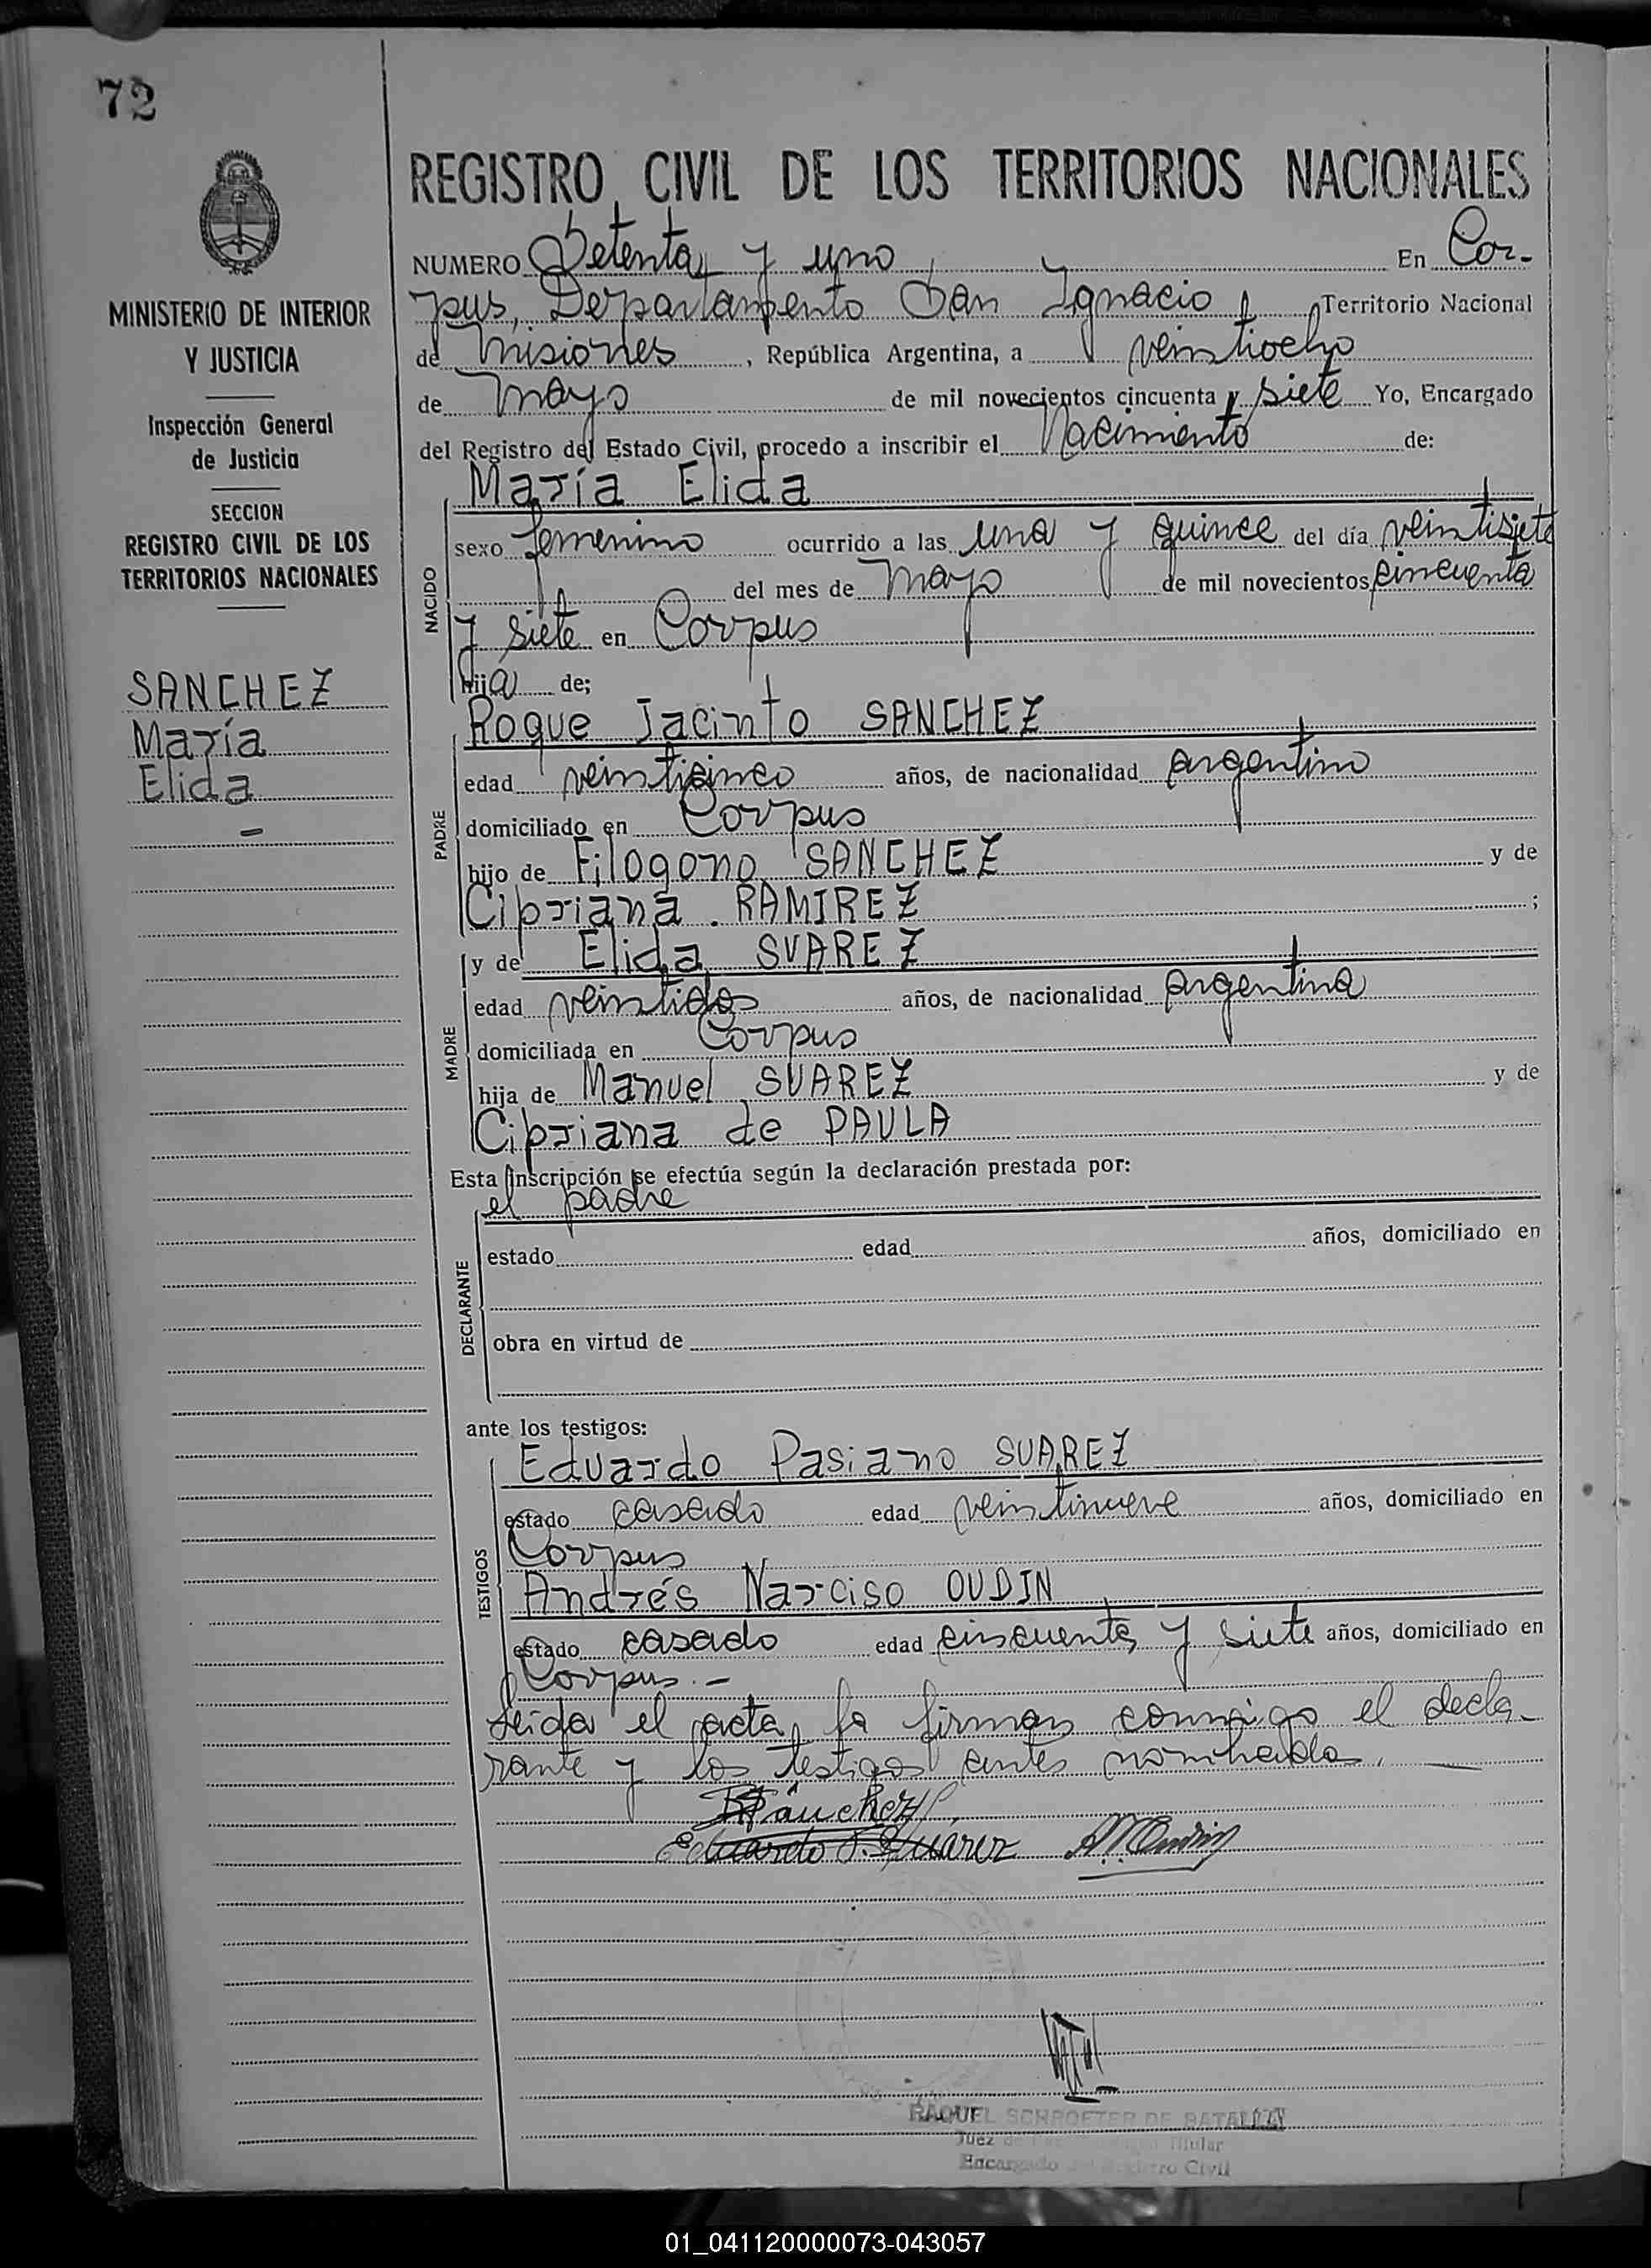 72
MINISTERIO DE INTERIOR
Y JUSTICIA
Inspección General
de Justicia
SECCION
REGISTRO CIVIL DE LOS
TERRITORIOS NACIONALES
SANCHEZ
María
Elida
-
REGISTRO CIVIL DE LOS TERRITORIOS NACIONALES
NUMERO Setenta y uno En Cor-
pus, Departamento San Ignacio, Territorio Nacional
de Misiones, República Argentina, a veintiocho
de Mayo de mil novecientos cincuenta y siete Yo, Encargado
del Registro del Estado Civil, procedo a inscribir el Nacimiento de:
NACIDO
María Elida
sexo femenino ocurrido a las una y quince del día veintisiete
del mes de Mayo de mil novecientos cincuenta
y siete en Corpus
hija de;
PADRE
Roque Jacinto SANCHEZ
edad veinticinco años, de nacionalidad argentino
domiciliado en Corpus
hijo de Filogono SANCHEZ y de
Cipriana RAMIREZ ;
MADRE
y de Elida SUAREZ
edad veintidos años, de nacionalidad argentina
domiciliada en Corpus
hija de Manuel SUAREZ y de
Cipriana de PAULA
Esta inscripción se efectúa según la declaración prestada por:
DECLARANTE
el padre
estado edad años, domiciliado en
obra en virtud de
ante los testigos:
TESTIGOS
Eduardo Pasiano SUAREZ
estado casado edad veintinueve años, domiciliado en
Corpus
Andrés Narciso OUDIN
estado casado edad cincuenta y siete años, domiciliado en
Corpus.-
Leida el acta, la firman conmigo el decla-
rante y los testigos antes nombrados,
Sánchez
Eduardo P. Suarez A.N. Oudin
RAQUEL SCHROETER DE
Juez de Titular
Encargado Registro Civil
01_041120000073-043057